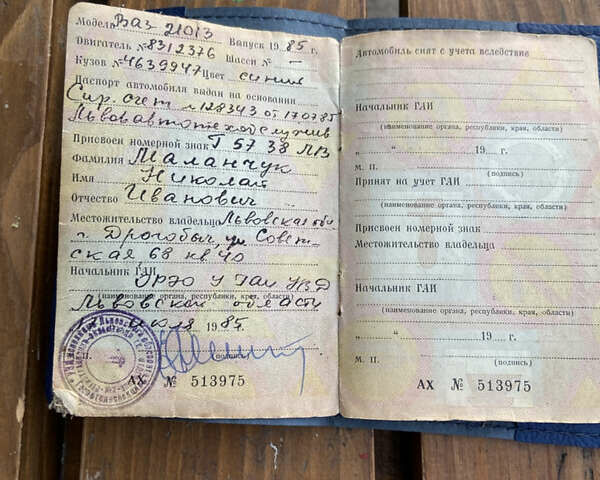 Модель Ваз 21013
Двигатель № 8312376 Выпуск 1985 г.
Кузов № 4639947 Цвет синий Шасси № —
Паспорт автомобиля выдан на основании
Спр. счет № 128343 от 170785
Присвоен номерной знак Г 57 38 ЛВ
Фамилия Маланчук
Имя Николай
Отчество Иванович
Местожительство владельца Львовская обл
г. Дрогобыч, ул Совет-
ская 68 кв 40
Начальник ГАИ ОРЭО УГАИ УВД
Львовской области
(наименование органа, республики, края, области)
1985 г.
М.П. (подпись)
АХ № 513975
Автомобиль снят с учета вследствие
Начальник ГАИ
(наименование органа, республики, края, области)
„ “ 19 г.
М. П. (подпись)
Принят на учет ГАИ
(наименование органа, республики, края, области)
Присвоен номерной знак
Местожительство владельца
Начальник ГАИ
(наименование органа, республики, края, области)
„ “ 19 г.
М. П. (подпись)
АХ № 513975